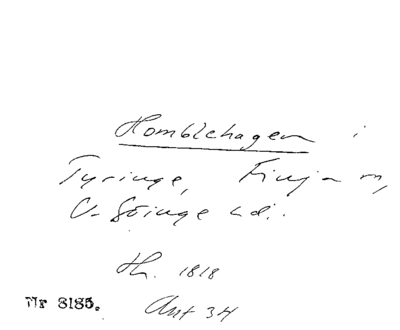 Homblehagen i
Tyringe, Finja sn,
V. Göinge hd.
Th. 1818
Nr 8185. Ant 34